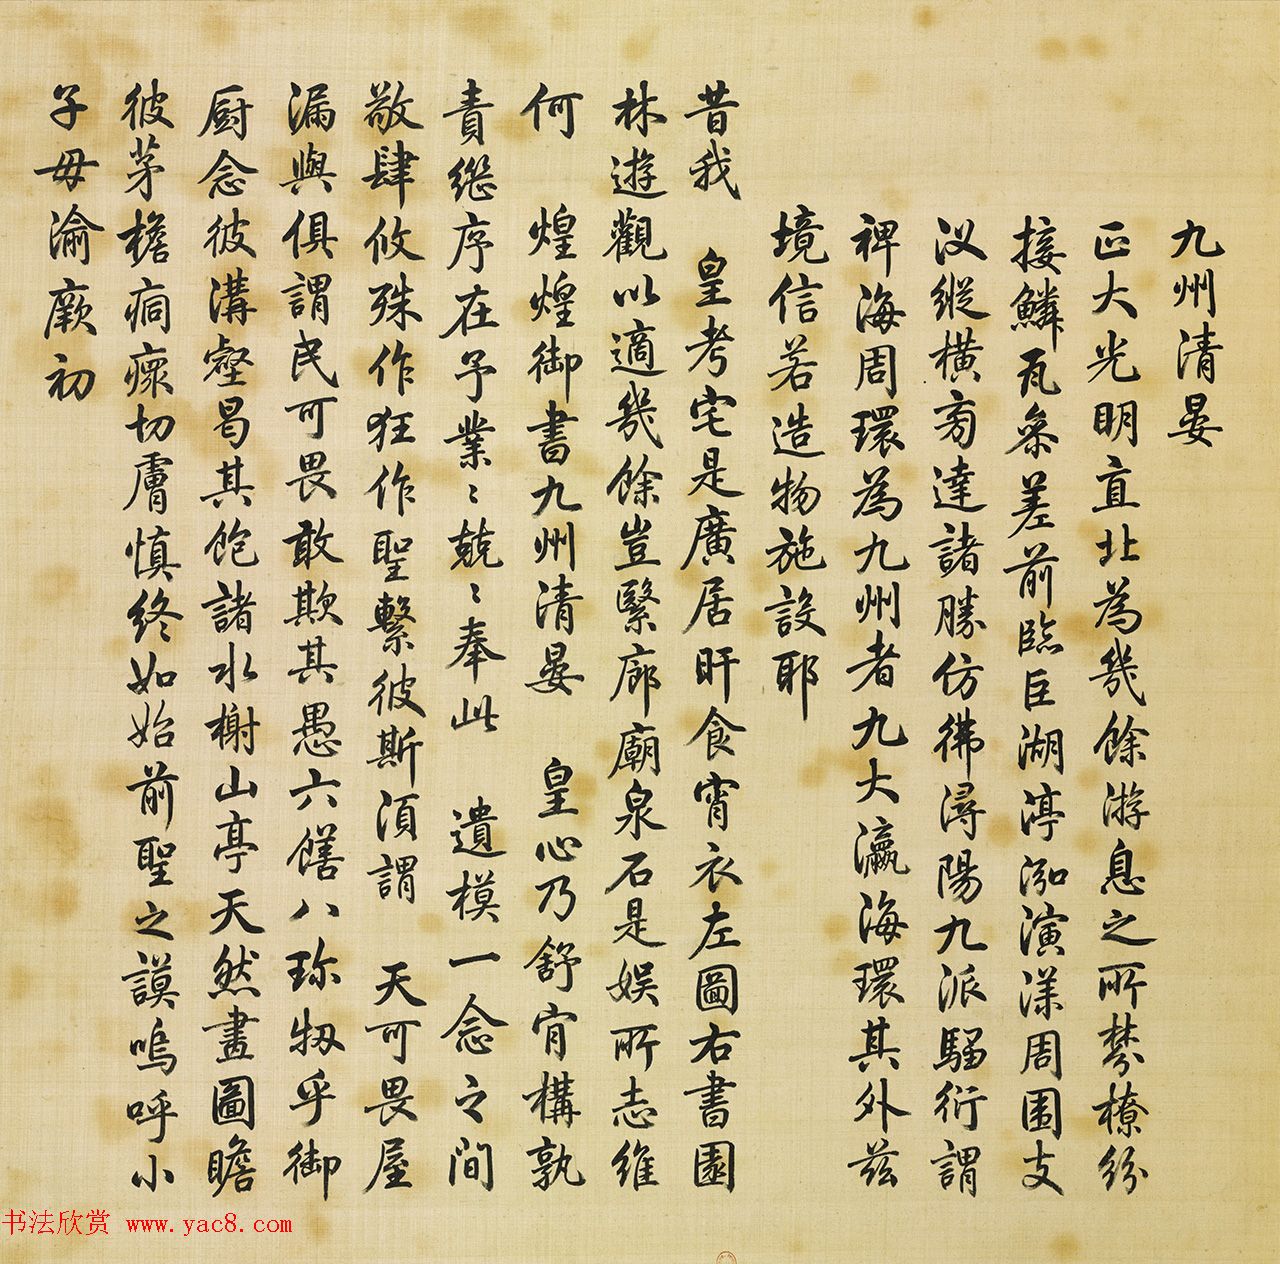 九州清晏
正大光明直北為幾餘游息之所棼橑紛
接鱗瓦參差前臨巨湖渟泓演漾周圍支
汊縱橫旁達諸勝仿彿潯陽九派騶衍謂
裨海周環為九州者九大瀛海環其外茲
境信若造物施設耶
昔我 皇考宅是廣居旰食宵衣左圖右書園
林遊觀以適幾餘豈繄廊廟泉石是娛所志維
何 煌煌御書九州清晏 皇心乃舒肯構孰
責繼序在予業〻兢〻奉此 遺模一念之間
敬肆攸殊作狂作聖繫彼斯須謂 天可畏屋
漏與俱謂民可畏敢欺其愚六饍八珍物乎御
厨念彼溝壑曷其飽諸水榭山亭天然畫圖瞻
彼茅檐痌瘝切膚慎終如始前聖之謨嗚呼小
子毋渝厥初
书法欣赏 www.yac8.com